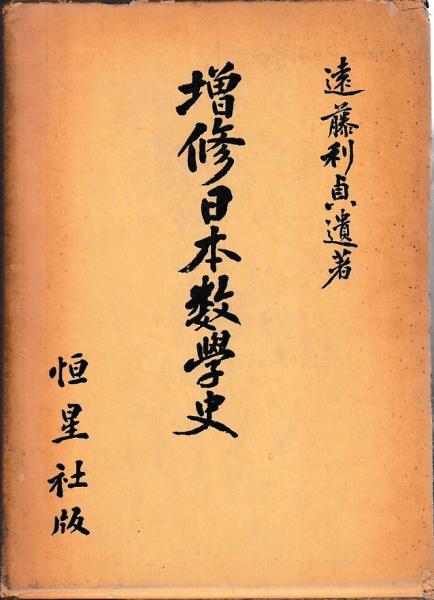 遠藤利貞遺著
増修日本数學史
恒星社版